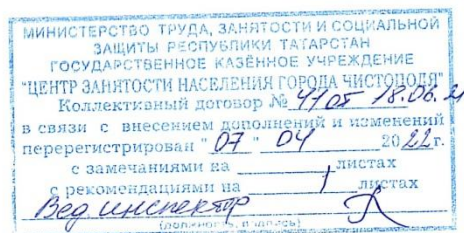 МИНИСТЕРСТВО ТРУДА, ЗАНЯТОСТИ И СОЦИАЛЬНОЙ
ЗАЩИТЫ РЕСПУБЛИКИ ТАТАРСТАН
ГОСУДАРСТВЕННОЕ КАЗЁННОЕ УЧРЕЖДЕНИЕ
"ЦЕНТР ЗАНЯТОСТИ НАСЕЛЕНИЯ ГОРОДА ЧИСТОПОЛЯ"
Коллективный договор № 41 от 18.06.21
в связи с внесением дополнений и изменений
перерегистрирован "07" 04 2022г.
с замечаниями на листах
с рекомендациями на 1 листах
Вед. инспектор
(должность, подпись)